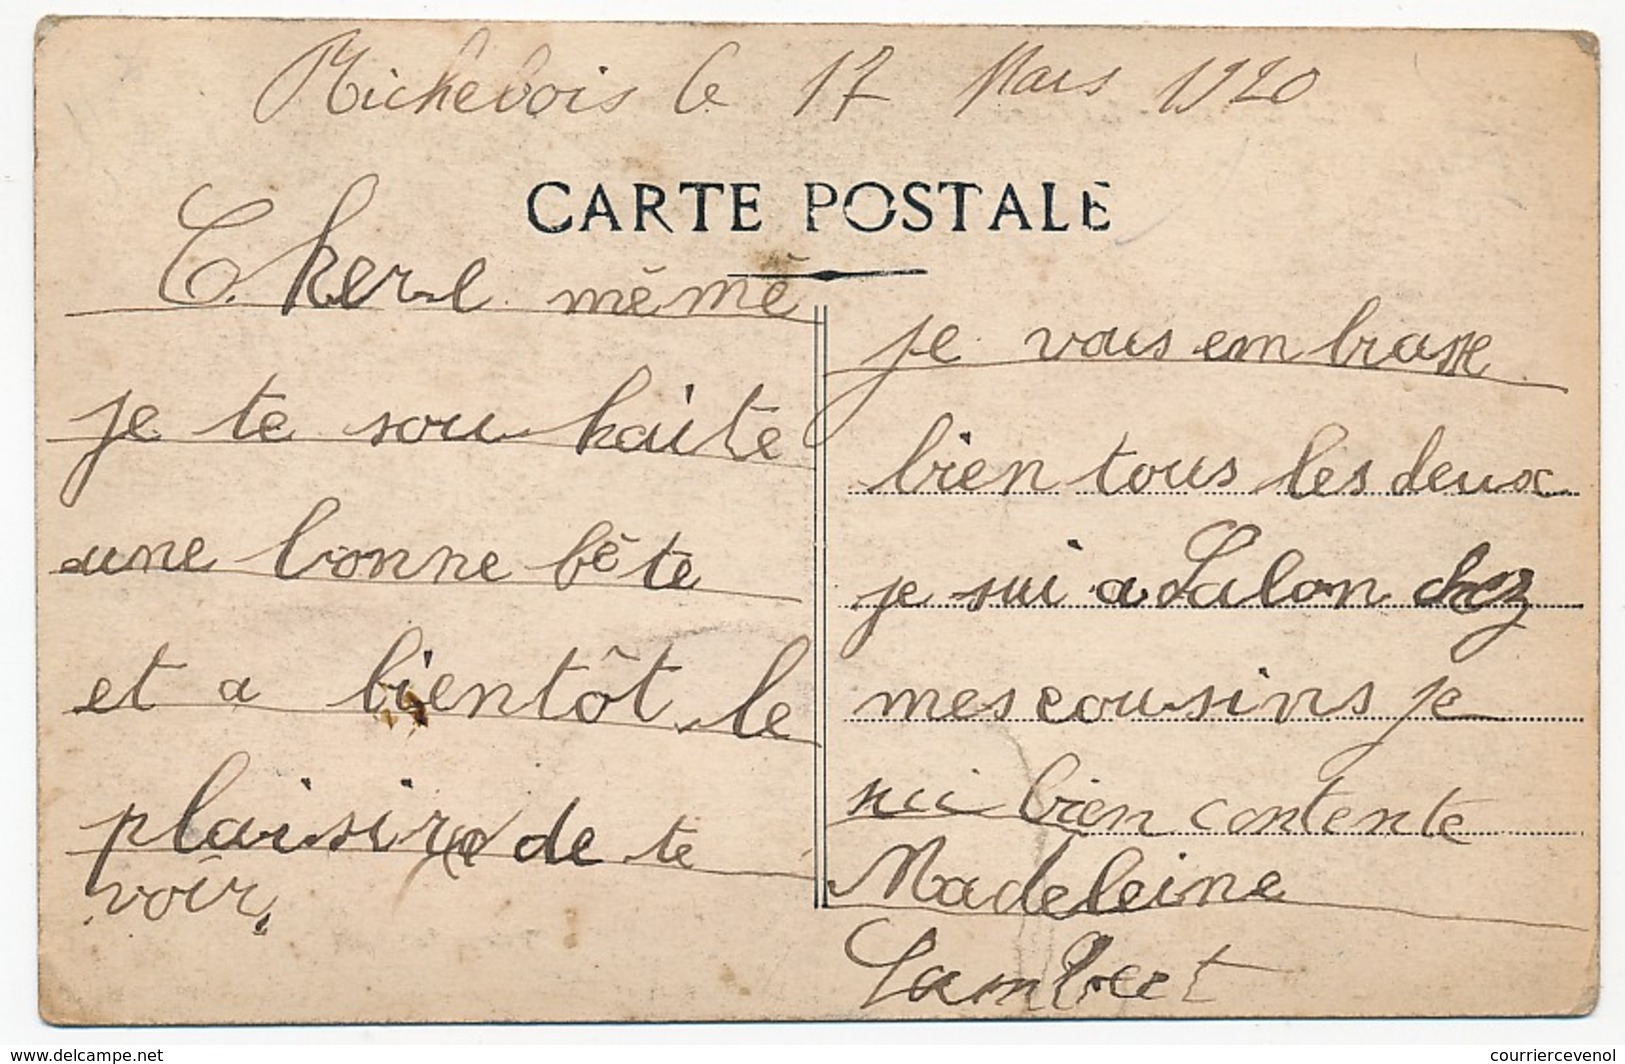 Richebois le 17 Mars 1920
CARTE POSTALE
Chere mémé
je te souhaite
une bonne fête
et a bientôt le
plaisire de te
voir,
je vous embrasse
bien tous les deux
je sui a Salon chez
mes cousins je
sui bien contente
Madeleine
Lambert
www.delcampe.net
courriercevenol